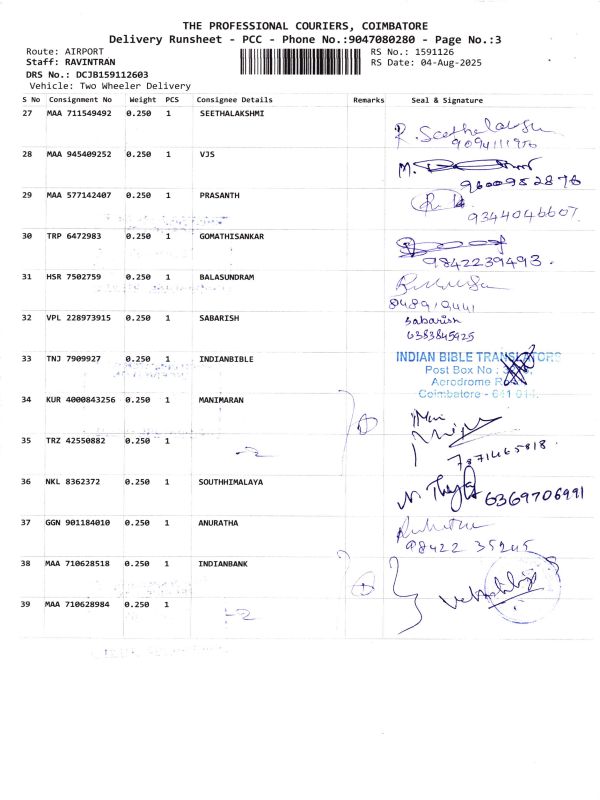 THE PROFESSIONAL COURIERS, COIMBATORE
Delivery Runsheet - PCC - Phone No.:9047080280 - Page No.:3
Route: AIRPORT
Staff: RAVINTRAN
DRS No.: DCJB159112603
Vehicle: Two Wheeler Delivery
RS No.: 1591126
RS Date: 04-Aug-2025
S No Consignment No Weight PCS Consignee Details Remarks Seal & Signature
27 MAA 711549492 0.250 1 SEETHALAKSHMI
R. Seethalakshmi
9094111950
28 MAA 945409252 0.250 1 VJS
M.
9600952876
29 MAA 577142407 0.250 1 PRASANTH
9344046607
30 TRP 6472983 0.250 1 GOMATHISANKAR
9842239493.
31 HSR 7502759 0.250 1 BALASUNDRAM
32 VPL 228973915 0.250 1 SABARISH
Sabarish
6383845925
33 TNJ 7909927 0.250 1 INDIANBIBLE
INDIAN BIBLE TRANSLATORS
Post Box No :
Aerodrome
Coimbatore - 641 014.
34 KUR 4000843256 0.250 1 MANIMARAN
Mani
35 TRZ 42550882 0.250 1
-2
7871465818.
36 NKL 8362372 0.250 1 SOUTHHIMALAYA
6369706991
37 GGN 901184010 0.250 1 ANURATHA
98422 35245
38 MAA 710628518 0.250 1 INDIANBANK
39 MAA 710628984 0.250 1
-2